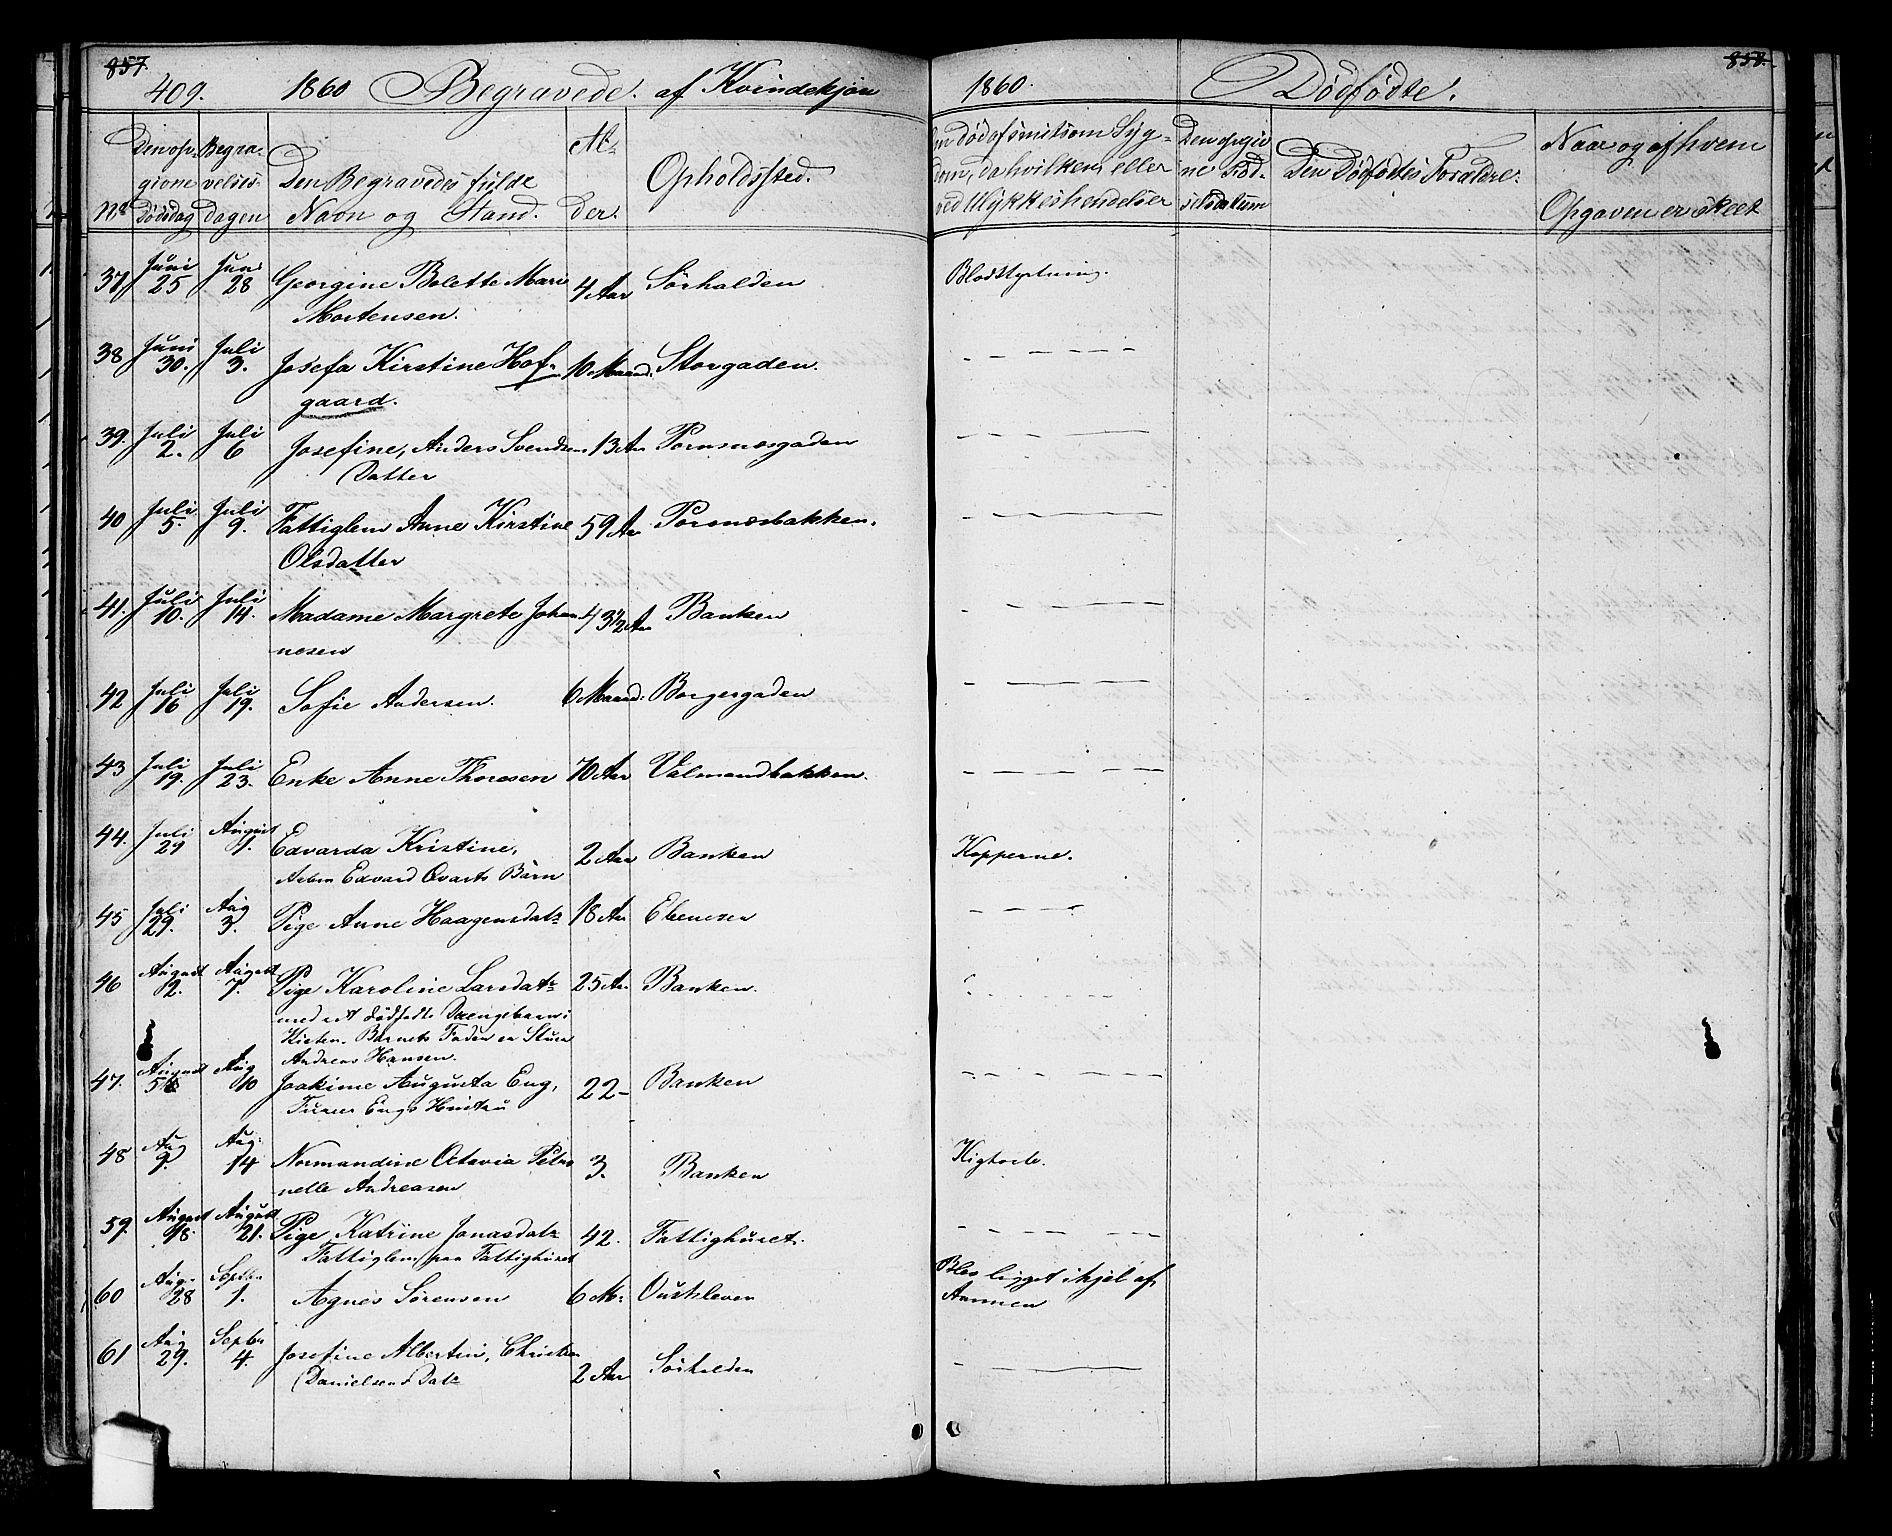 857.
409. 1860 Begravede. af Kvindekjøn
No
Den opgivne Dødsdag
Begravelses-dagen
Den Begravedes fulde Navn og Stand.
Alder.
Opholdssted.
37 Juni 25 Juni 28 Georgine Bolette Marie 4 Aar Sørhalden
Mortensen.
38 Juni 30. Juli 3. Josefa Kirstine Hof- 10 Maand: Storgaden.
gaard.
39. Juli 2. Juli 6 Josefine, Anders Svendsens 13 Aar
Datter
40 Juli 5. Juli 9. Fattiglem Anne Kirstine 59 Aar
Olsdatter
41. Juli 10. Juli 14. Madame Margrete Johan 43½ Aar Banken
nesen
42 Juli 16 Juli 19. Sofie Andersen. 6 Maand: Borgergaden
43 Juli 19. Juli 23. Enke Anne Thoresen 70 Aar Valmandbakken.
44. Juli 29 August 1. Edvarda Kristine, 2 Aar Banken
Edvard Qvarts Barn
45 Juli 29. Aug 3. Pige Anne Haagensdatr 18 Aar Ebeneser
46 August 2. August 7. Pige Karoline Larsdatr 25 Aar Banken.
med et dødfødt Drengebarn i
Kisten. Barnets Fader er
Andreas Hansen.
47. August 5 Aug 10 Joakime Augusta Eng, 22 – Banken
Engs Hustru
48 Aug 9. Aug: 14 Normandine Octavia Petro 3. Banken
nelle Andreasen
59. August 18. August 21. Pige Katrine Jonasdatr 42. Fattighuset.
Fattiglem paa Fattighuset
60 Aug. 28 Septbr 1. Agnes Sørensen 6 M:
61 Aug 29. Septbr 4. Josefine Albertin, Christian 2 Aar Sørhalden
Danielsens Datr
858.
1860. Dødfødte.
en død af smitsom Syg-
dom, da hvilken, eller
ved Ulykkeshendelser
Den opgiv
ne Fød-
selsdatum
Den Dødfødtes Forældre.
Naar og af hvem
Opgaven er skeet
Blodstyrtning.
Kopperne.
Kighoste.
Blev ligget ihjel af
Ammen